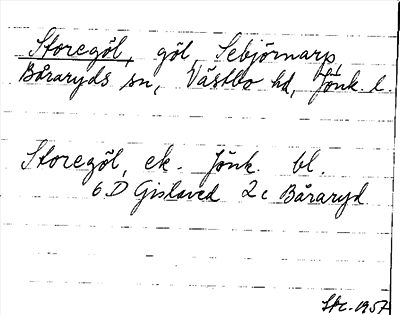 Storegöl, göl, Sebjörnarp,
Båraryds sn, Västbo hd, Jönk. l.
Storegöl, ek. Jönk. bl.
6 D Gislaved 2 c Båraryd
1957